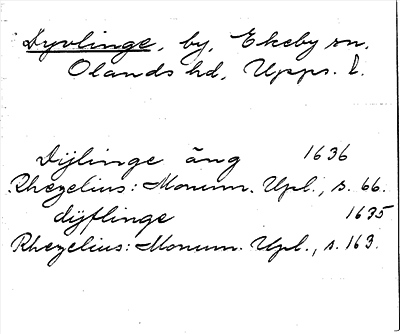 Dyvlinge, by, Ekeby sn,
Olands hd, Upps. l.
Dijlinge äng 1636
Rhezelius: Monum. Upl., s. 66.
dijflinge 1635
Rhezelius: Monum. Upl., s. 163.